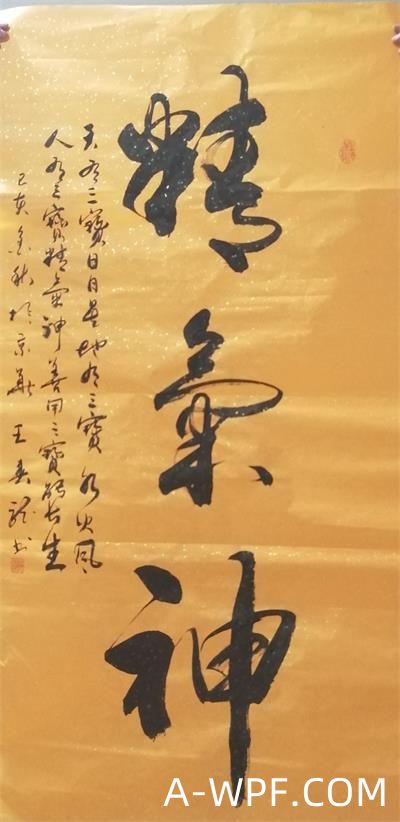 精氣神
天有三寶日月星地有三寶水火風
人有三寶精氣神善用三寶能長生
己亥金秋於京華王春龍书
A-WPF.COM